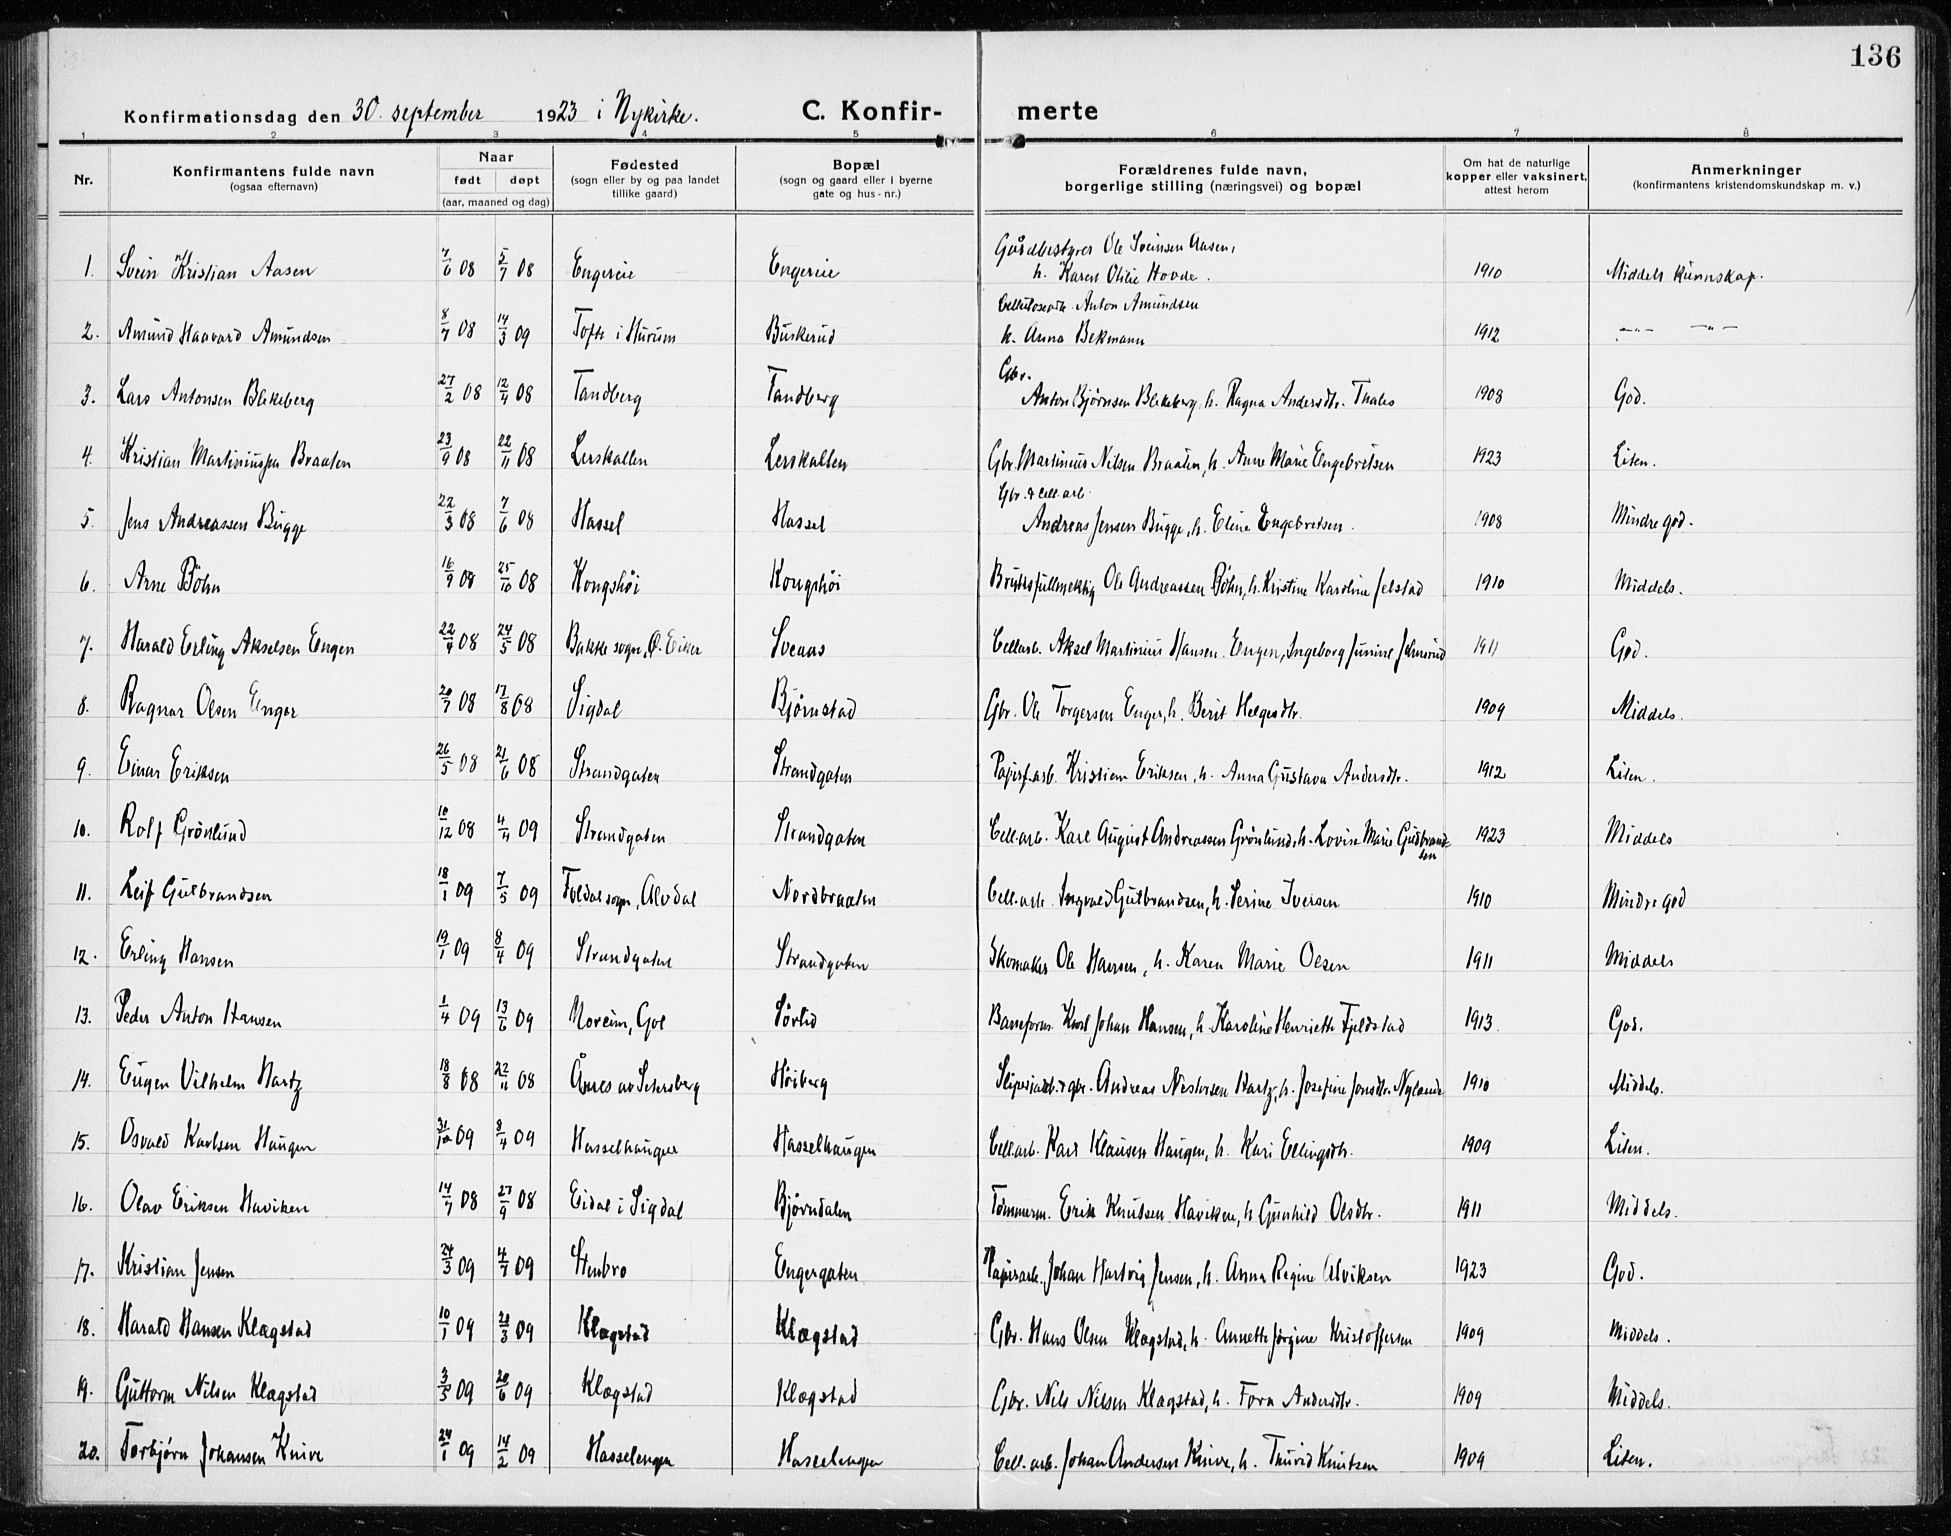 136
Konfirmationsdag den 30. september 1923 i Nykirke. C. Konfir- merte
1 2 3 4 5 6 7 8
Nr. Konfirmantens fulde navn (ogsaa efternavn) Naar født døpt (aar, maaned og dag) Fødested (sogn eller by og paa landet tillike gaard) Bopæl (sogn og gaard eller i byerne gate og hus-nr.) Forældrenes fulde navn, borgerlige stilling (næringsvei) og bopæl Om hat de naturlige kopper eller vaksinert, attest herom Anmerkninger (konfirmantens kristendomskundskap m. v.)
1. Svein Kristian Aasen 7/6 08 5/7 08 Engereie Engereie Gårdbestyrer Ole Sveinsen Aasen, h. Karen Otilie Hovde. 1910 Middels kunnskap.
2. Amund Haavard Amundsen 8/7 08 14/3 09 Tofte i Hurum Buskerud Cellulosearb. Anton Amundsen h. Anna Bekmann 1912 -"- -"-
3. Lars Antonsen Blekeberg 27/2 08 12/4 08 Tandberg Tandberg Gbr. Anton Bjørnsen Blekeberg, h. Ragna Andersdtr. Thales 1908 God.
4. Kristian Martiniussen Braaten 23/9 08 22/11 08 Lerskallen Lerskallen Gbr. Martinius Nilsen Braaten, h. Anne Marie Engebretsen 1923 Liten.
5. Jens Andreassen Bugge 22/3 08 7/6 08 Hassel Hassel Gbr. & cell.arb. Andreas Jensen Bugge, h. Eline Engebretsen. 1908 Mindre god.
6. Arne Böhn 16/9 08 25/10 08 Kongshöi Kongshöi Ole Andreassen Böhn, h. Kristine Karoline Jelstad 1910 Middels.
7. Harald Erling Akselsen Engen 22/4 08 24/5 08 Bakke sogn, Ø. Eiker Sveaas Cellarb. Aksel Martinius Hansen Engen, Ingeborg 1911 God.
8. Ragnar Olsen Enger 20/7 08 17/8 08 Sigdal Bjørnstad Gbr. Ole Torgersen Enger, h. Berit Helgesdtr. 1909 Middels.
9. Einar Eriksen 26/5 08 21/6 08 Strandgaten Strandgaten Papirf.arb. Kristian Eriksen, h. Anna Gustava Andersdtr. 1912 Liten.
10. Rolf Grönlund 10/12 08 4/4 09 Strandgaten Strandgaten Cell.arb. Karl August Andreassen Grönlund, h. Lovise Marie Gudbrandsen 1923 Middels
11. Leif Gulbrandsen 18/1 09 7/5 09 Foldal sogn, Alvdal Nordbraaten Cell.arb. Ingvald Gulbrandsen, h. Serine Iversen 1910 Mindre god
12. Erling Hansen 19/1 09 8/4 09 Strandgaten Strandgaten Skomaker Ole Hansen, h. Karen Marie Olsen 1911 Middels
13. Peder Anton Hansen 1/4 09 13/6 09 Noreim, Gol Sörlid Karl Johan Hansen, h. Karoline Henriette Fjeldstad 1913 God.
14. Eugen Vilhelm Hartz 18/8 08 22/11 08 Åmes av Setersberg Höiberg Sliperiarb. & gbr. Andreas Nestorsen Hartz, h. Josefine Jonsdtr. Nylande 1910 Middels.
15. Osvald Karlsen Haugen 31/1 09 8/4 09 Hasselhaugen Hasselhaugen Cell.arb. Karl Klausen Haugen, h. Kari Ellingsdtr. 1909 Liten.
16. Olav Eriksen Haviken 14/7 08 27/9 08 Eidal i Sigdal Bjørndalen Tömmerm. Erik Knutsen Haviken, h. Gunhild Olsdtr. 1911 Middels.
17. Kristian Jensen 24/3 09 4/7 09 Stenbro Engergaten Papirarb. Johan Hartvig Jensen, h. Anna Regine Alviksen 1923 God.
18. Harald Hansen Klægstad 10/1 09 28/3 09 Klægstad Klægstad Gbr. Hans Olsen Klægstad, h. Annette Jörgine Kristoffersen 1909 Middels.
19. Guttorm Nilsen Klægstad 3/5 09 20/6 09 Klægstad Klægstad Gbr. Nils Nilsen Klægstad, h. Tora Andersdtr. 1909 Middels.
20. Torbjørn Johansen Knive 24/1 09 14/2 09 Hasselengen Hasselengen Cell.arb. Johan Andersen Knive, h. Thurid Knutsen 1909 Liten.